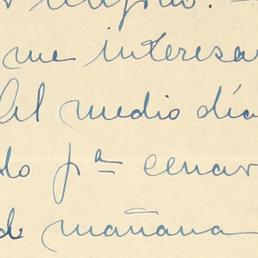 me interesa
Al medio día
do pª cenar
de mañana